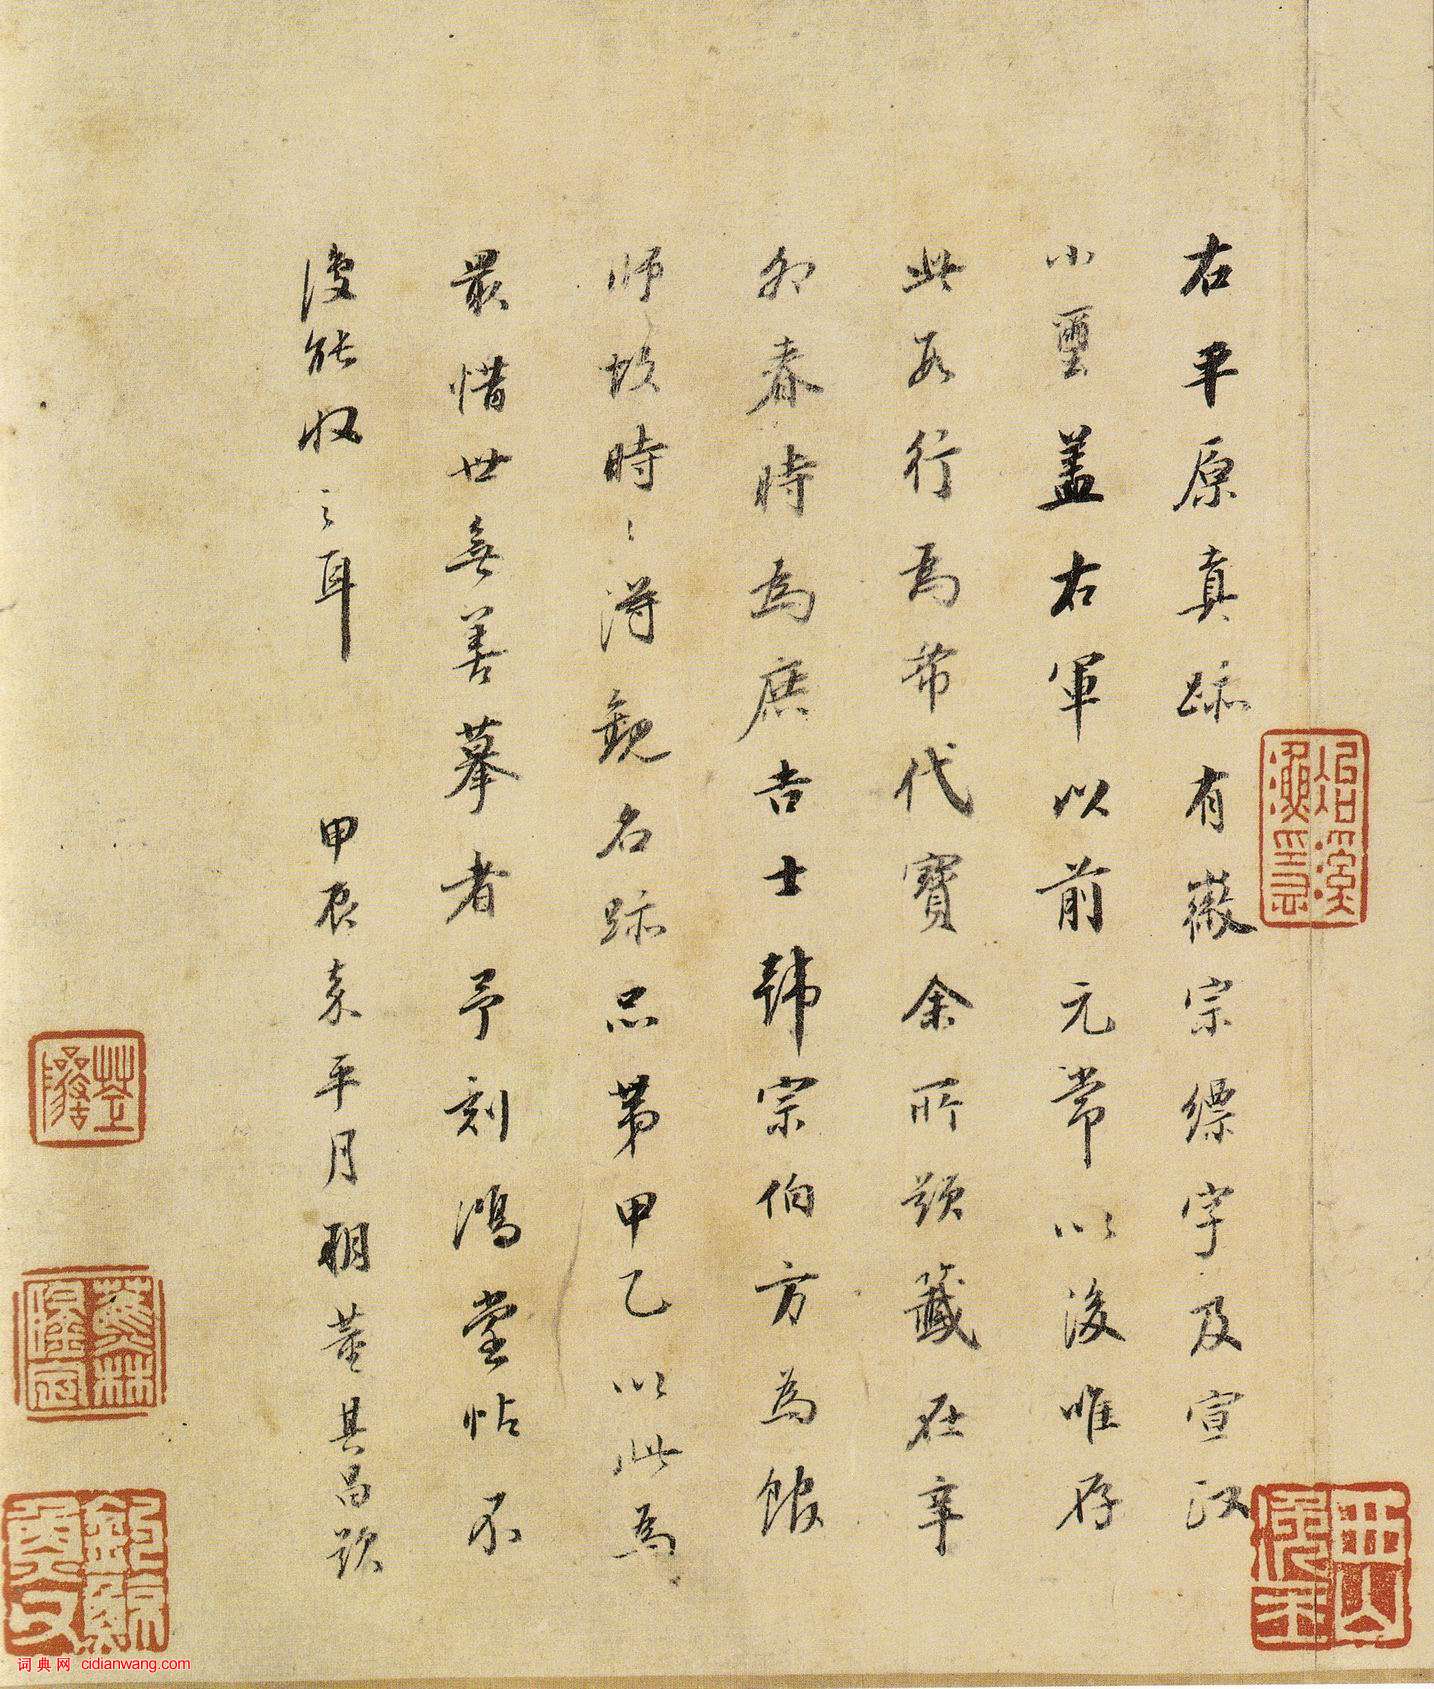 右平原真跡有徽宗縹字及宣政
小璽蓋右軍以前元常以後唯存
此數行為希代寶余所題籤在辛
卯春時為庶吉士韓宗伯方為館
師故時〻得觀名跡品第甲乙以此為
最惜世無善摹者予刻鴻堂帖不
復能收之耳 甲辰嘉平月朔董其昌題
冶溪漁隱
词典网 cidianwang.com